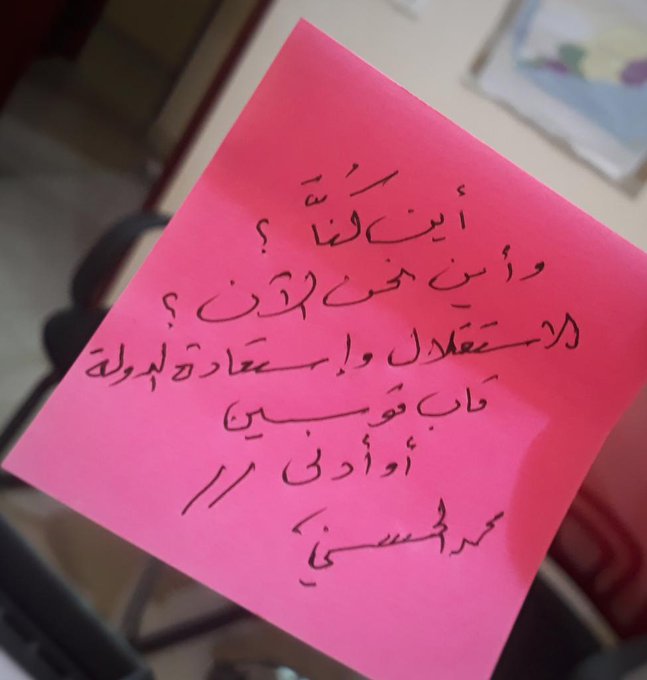 أين كُنَّا ؟
وأين نحن الآن ؟
الاستقلال وإستعادة الدولة
قاب قوسين
أو أدنى //
محمد الحسني